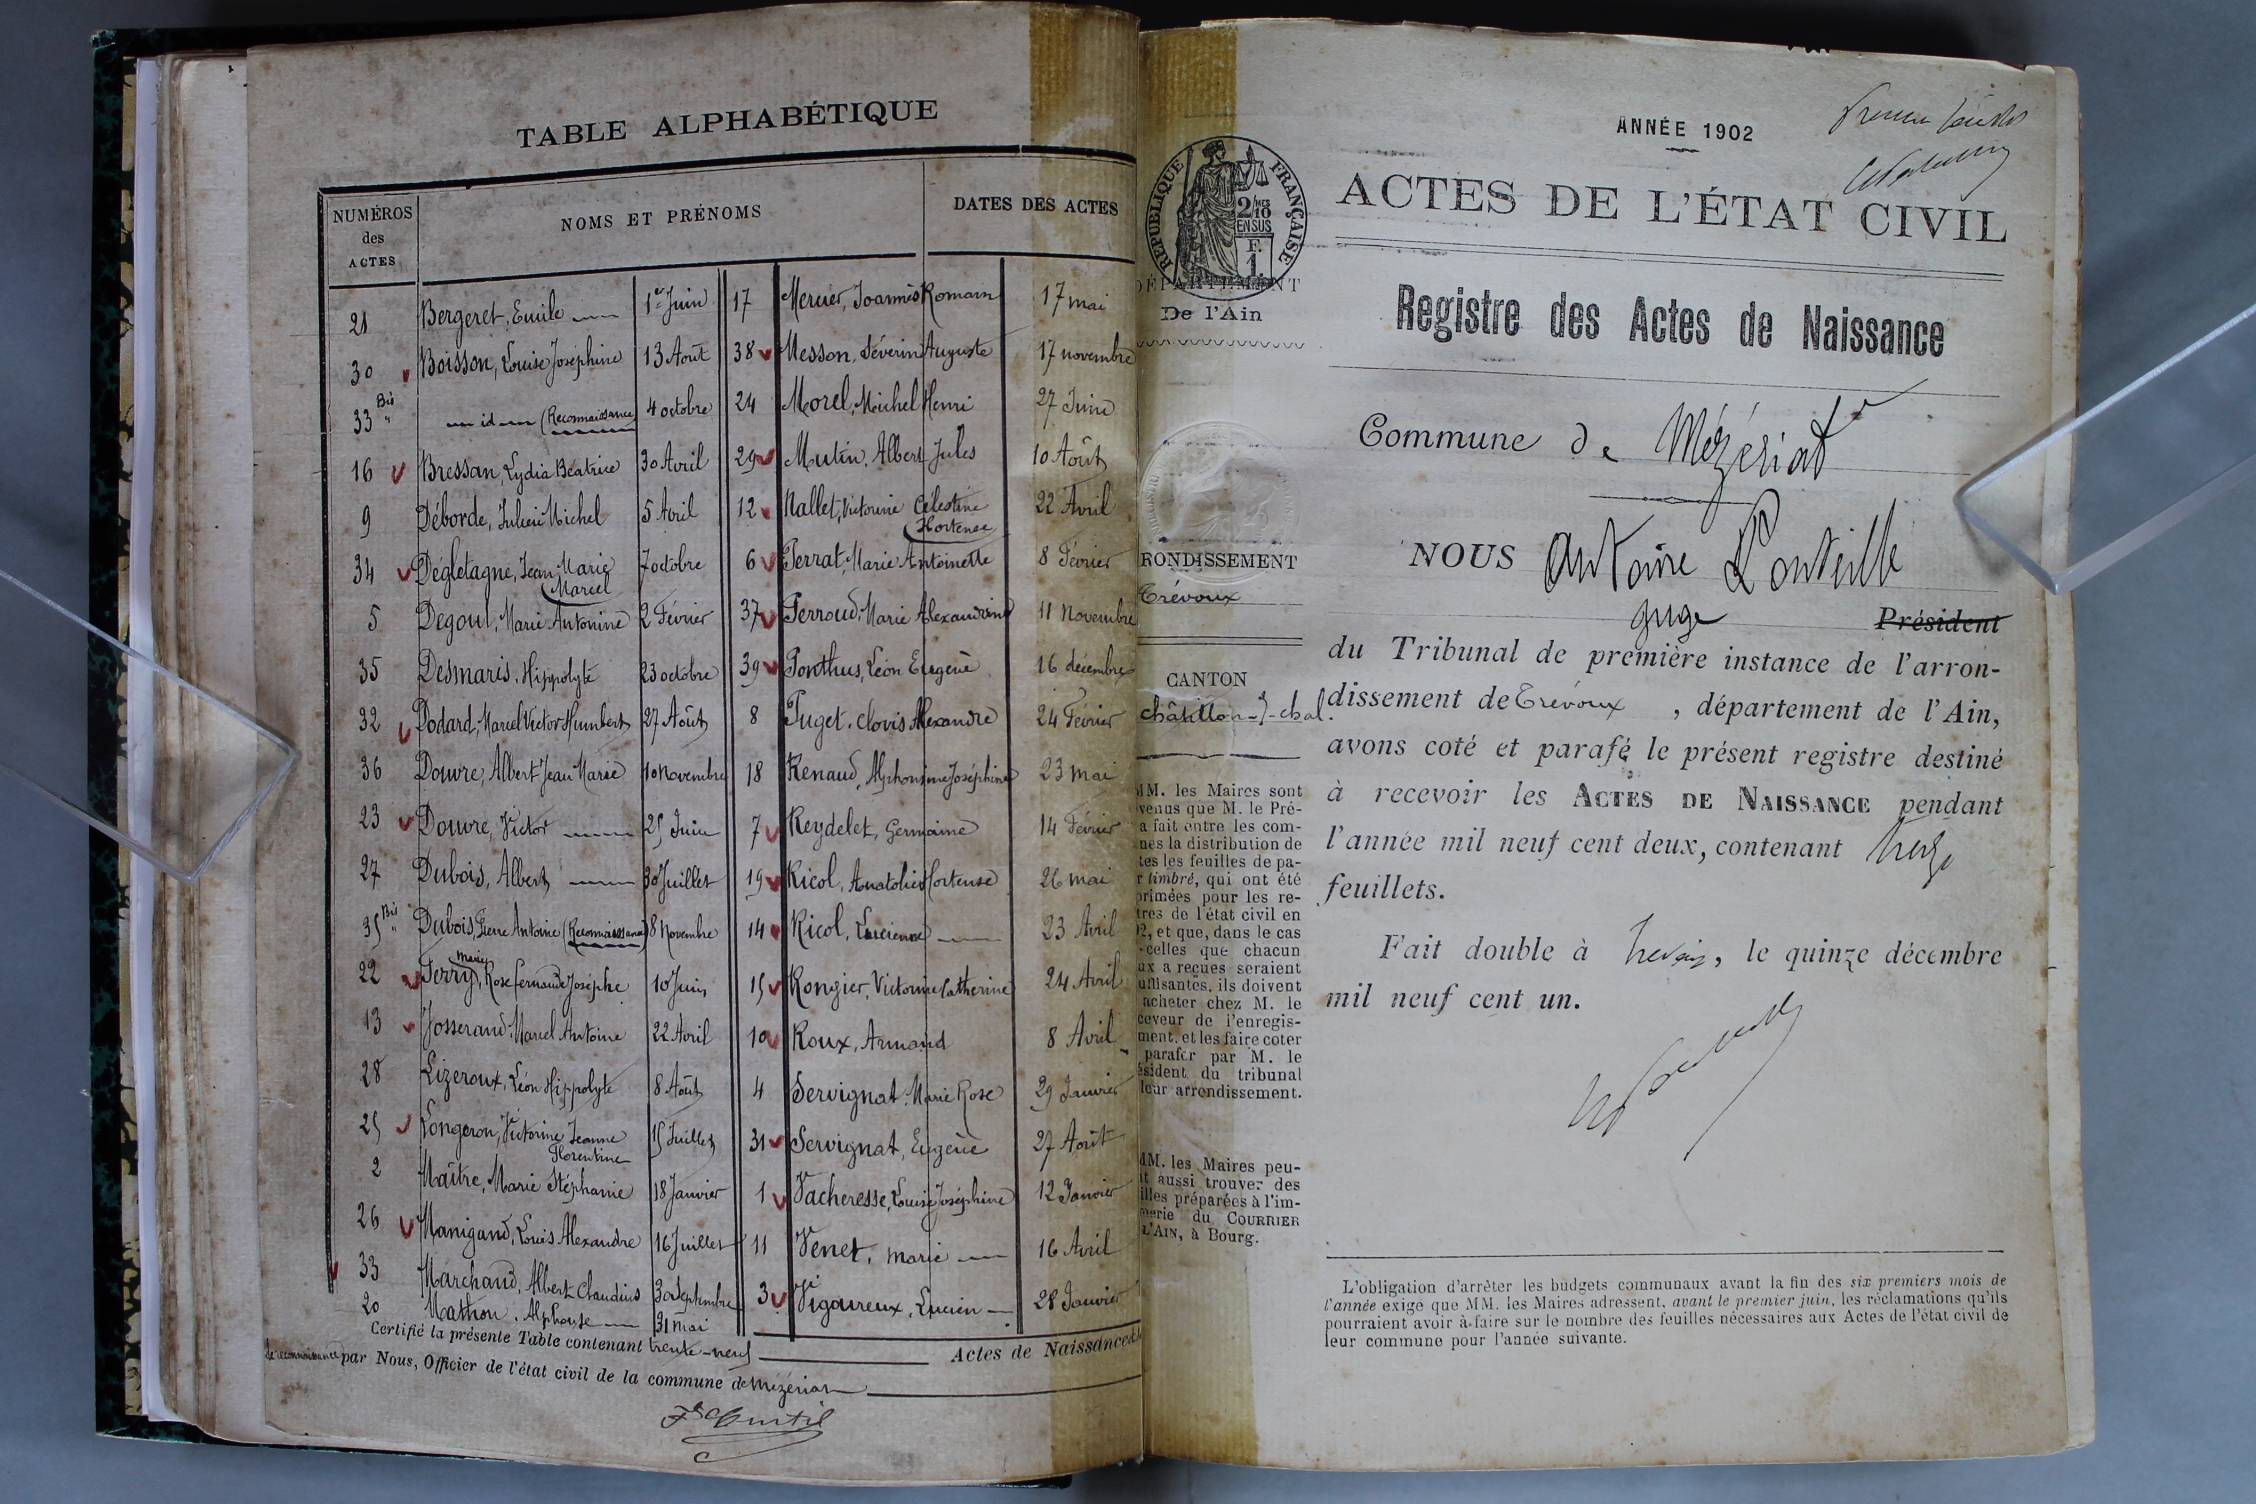 TABLE ALPHABÉTIQUE
NUMÉROS des ACTES
NOMS ET PRÉNOMS
DATES DES ACTES
21 Bergeret, Emile 1er Juin
30 Boisson, Louise Joséphine 13 Août
33 Bis " id (Reconnaissance) 4 octobre
16 Bressan, Lydia Béatrice 30 Avril
9 Déborde, Julien Michel 5 Avril
34 Dégletagne, Jean Marie Marcel 7 octobre
5 Degoul, Marie Antonine 2 Février
35 Desmaris, Hippolyte 23 octobre
32 Dodard, Marcel Victor Humbert 27 Août
36 Douvre, Albert Jean Marie 10 Novembre
23 Douvre, Victor 25 Juin
27 Dubois, Albert 30 Juillet
35 Bis " Dubois, Pierre Antoine (Reconnaissance) 8 Novembre
22 Ferry, Marie Rose Fernande Josèphe 10 Juin
13 Josserand Marcel Antoine 22 Avril
28 Lizeroux, Léon Hippolyte 8 Août
25 Longeron, Victorine Jeanne Florentine 15 Juillet
2 Maître, Marie Stéphanie 18 Janvier
26 Manigand, Louis Alexandre 16 Juillet
33 Marchand, Albert Claudius 30 Septembre
20 Mathon, Alphonse 31 mai
17 Mercier, Joannès Romain 17 mai
38 Messon, Séverin Auguste 17 novembre
24 Morel, Michel Henri 27 Juin
29 Mutin, Albert Jules 10 Août
12 Nallet, Victorine Célestine Hortense 22 Avril
6 Perrat, Marie Antoinette 8 Février
37 Perroud, Marie Alexandrine 11 Novembre
39 Ponthus, Léon Eugène 16 décembre
8 Puget, Clovis Alexandre 24 Février
18 Renaud, Alphonsine Joséphine 23 mai
7 Reydelet, Germaine 14 Février
19 Ricol, Anatolie Hortense 26 mai
14 Ricol, Lucienne 23 Avril
15 Rongier, Victorine Catherine 24 Avril
10 Roux, Armand 8 Avril
4 Servignat, Marie Rose 29 Janvier
31 Servignat, Eugène 27 Août
1 Vacheresse, Louise Joséphine 12 Janvier
11 Venet, Marie 16 Avril
3 Vigoureux, Lucien 28 Janvier
Certifié la présente Table contenant trente-neuf Actes de Naissance
de reconnaissance par Nous, Officier de l'état civil de la commune de Mézériat
RÉPUBLIQUE FRANÇAISE
2/10 EN SUS
F. 1.
DÉPARTEMENT
De l'Ain
RONDISSEMENT
Trévoux
CANTON
Châtillon-s-chal.
MM. les Maires sont
venus que M. le Pré-
a fait entre les com-
nes la distribution de
tes les feuilles de pa-
r timbré, qui ont été
primées pour les re-
tres de l'état civil en
2, et que, dans le cas
celles que chacun
ux a reçues seraient
uffisantes, ils doivent
acheter chez M. le
ceveur de l'enregis-
ment, et les faire coter
parafer par M. le
ésident du tribunal
leur arrondissement.
MM. les Maires peu-
t aussi trouver des
illes préparées à l'im-
merie du COURRIER
L'AIN, à Bourg.
ANNÉE 1902
ACTES DE L'ÉTAT CIVIL
Registre des Actes de Naissance
Commune de Mézériat
NOUS Antoine
juge Président
du Tribunal de première instance de l'arron-
dissement de Trévoux, département de l'Ain,
avons coté et parafé le présent registre destiné
à recevoir les ACTES DE NAISSANCE pendant
l'année mil neuf cent deux, contenant treize
feuillets.
Fait double à Trévoux, le quinze décembre
mil neuf cent un.
L'obligation d'arrêter les budgets communaux avant la fin des six premiers mois de
l'année exige que MM. les Maires adressent, avant le premier juin, les réclamations qu'ils
pourraient avoir à faire sur le nombre des feuilles nécessaires aux Actes de l'état civil de
leur commune pour l'année suivante.